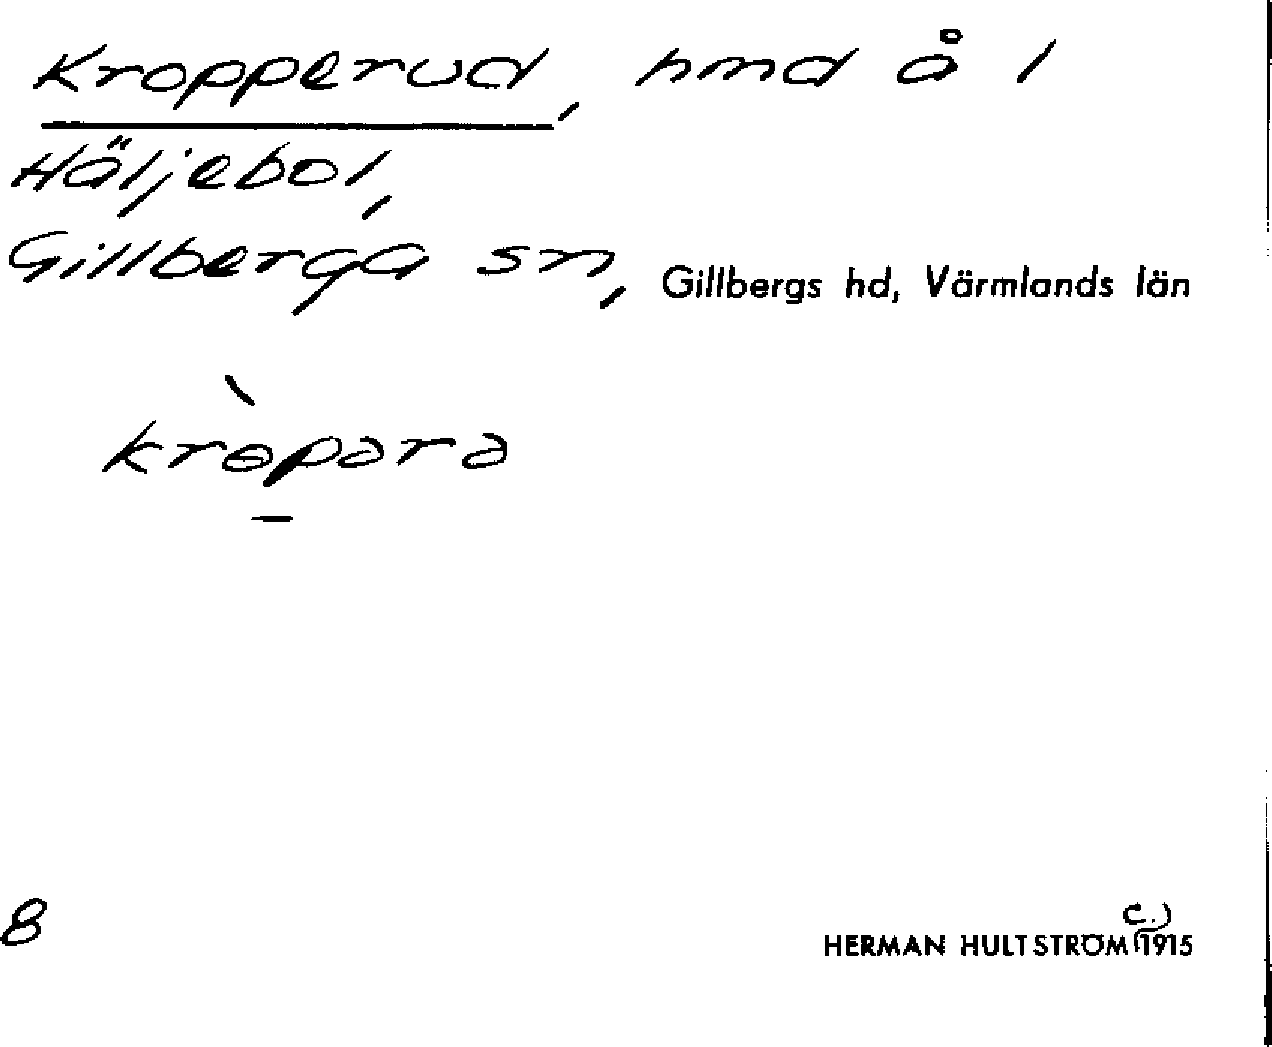 Kropperud, hmd å 1
Häljebol,
Gillberga sn, Gillbergs hd, Värmlands län
krɵ̀para
8
HERMAN HULTSTRÖM (c.) 1915